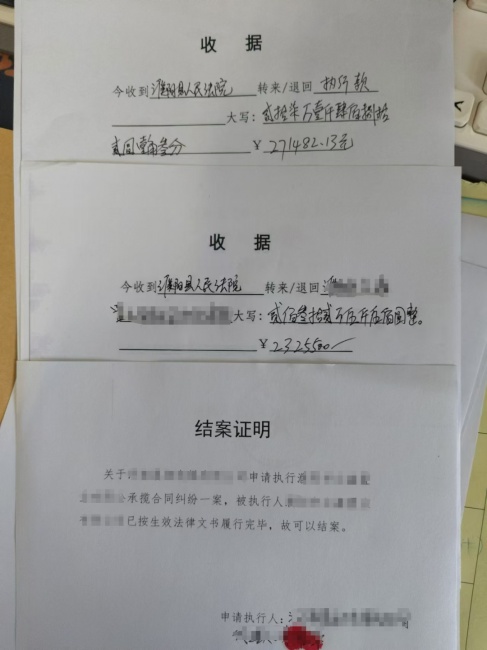 收 据
今收到濮阳县人民法院 转来/退回 执行款
大写：贰拾柒万壹仟肆佰捌拾
贰圆壹角叁分 ￥271482.13元
收 据
今收到濮阳县人民法院 转来/退回
大写：贰佰叁拾贰万伍仟伍佰圆整。
￥2325500
结案证明
关于 申请执行
承揽合同纠纷一案，被执行人
已按生效法律文书履行完毕，故可以结案。
申请执行人：